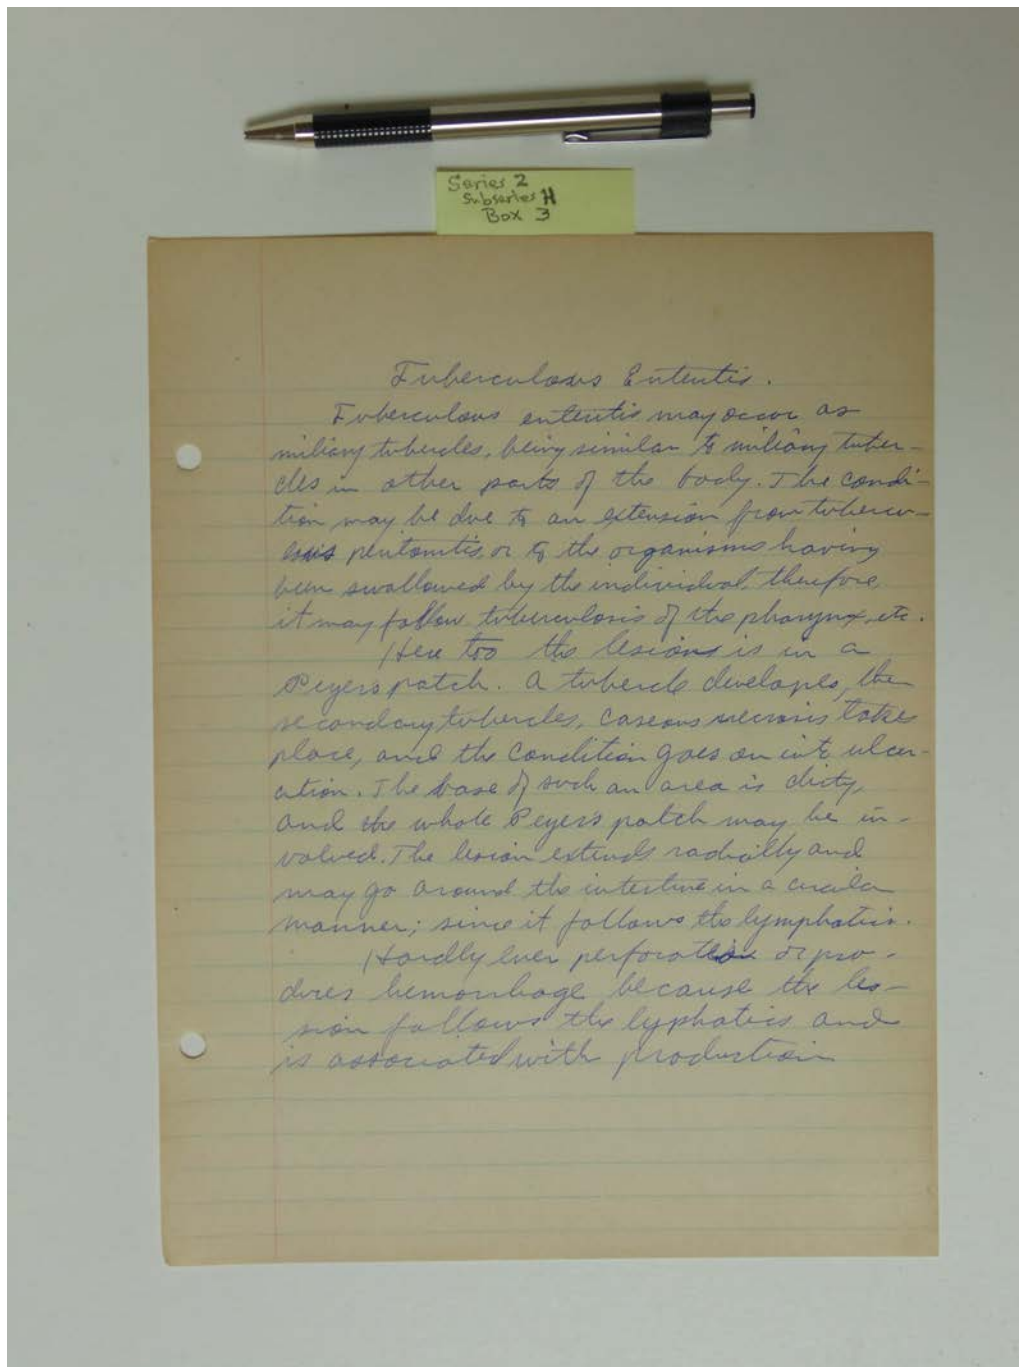 Series 2
Subseries H
Box 3
Tuberculous Enteritis.
Tuberculous enteritis may occur as
miliary tubercles, being similar to miliary tuber-
cles in other parts of the body. The condi-
tion may be due to an extension from tubercu-
lous peritonitis, or to the organisms having
been swallowed by the individual, therefore,
it may follow tuberculosis of the pharynx, etc.
Here too the lesions is in a
Peyers patch. A tubercle developes, then
secondary tubercles, caseous necrosis takes
place, and the condition goes on into ulcer-
ation. The base of such an area is dirty,
and the whole Peyers patch may be in-
volved. The lesion extends radially and
may go around the intestine in a circular
manner; since it follows the lymphatics.
Hardly ever perforation or pro-
duces hemorrhage because the les-
sion follows the lyphatics and
is associated with production